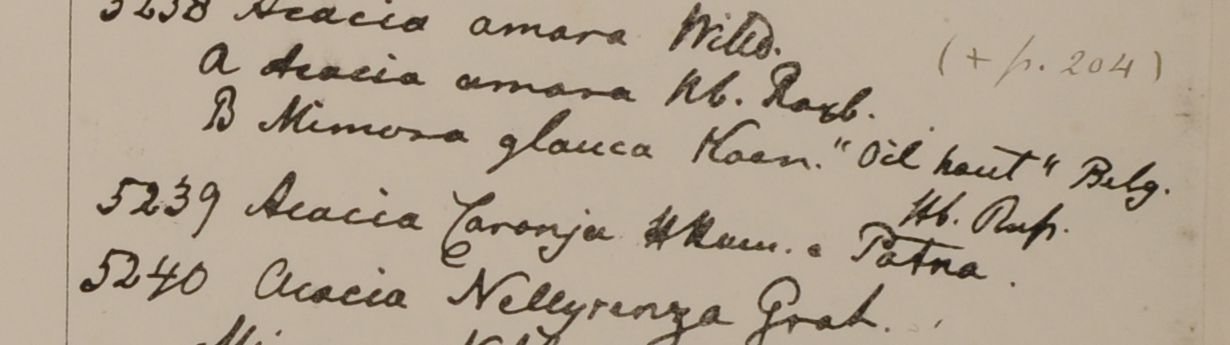 5238 Acacia amara Willd.
(+ p. 204)
A Acacia amara Hb. Roxb.
B Mimosa glauca Koen. "Oil haut" Belg.
Hb. Rup.
5239 Acacia HHam. e Patna.
5240 Acacia Nellyrenza Grah.